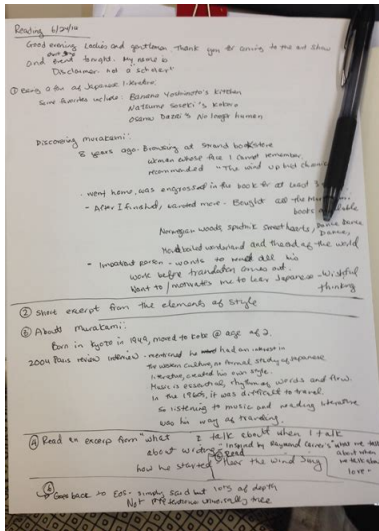 Reading 6/24/14
Good evening Ladies and gentlemen. Thank you for coming to the art show
and event tonight. My name is
Disclaimer: not a scholar
① Being a fan of Japanese literature.
Some favorites include: Banana Yoshimoto's Kitchen
Natsume Soseki's Kokoro
Osamu Dazai's No longer human
Discovering Murakami:
8 years ago. Browsing at strand bookstore
Women whose face I cannot remember
recommended "The wind up bird
- went home, was engrossed in the book for at least
- After I finished, wanted more. Bought all the Murakami
books
Norwegian woods, sputnik sweethearts, Dance Dance
Dance,
Hardboiled wonderland and the end of the world
- Important person - wants to read all his
work before translation comes out.
Want to / motivates me to learn Japanese - wishful
thinking
② Share excerpt from the elements of style
③ About Murakami:
Born in Kyoto in 1949, moved to Kobe @ age of 2.
2004 Paris review interview - mentioned he had an interest in
the western culture, no formal study of Japanese
literature, created his own style.
Music is essential, rhythm of words and flow.
In the 1960s, it was difficult to travel,
so listening to music and reading literature
was his way of traveling.
④ Read an excerp from "what I talk about when I talk
about
- Inspired by Raymond Carver's "what we talk
about when
we talk about
love"
how he started
Read
Hear the wind sing
Goes back to EOS - simply said but lots of depth
Not universally true